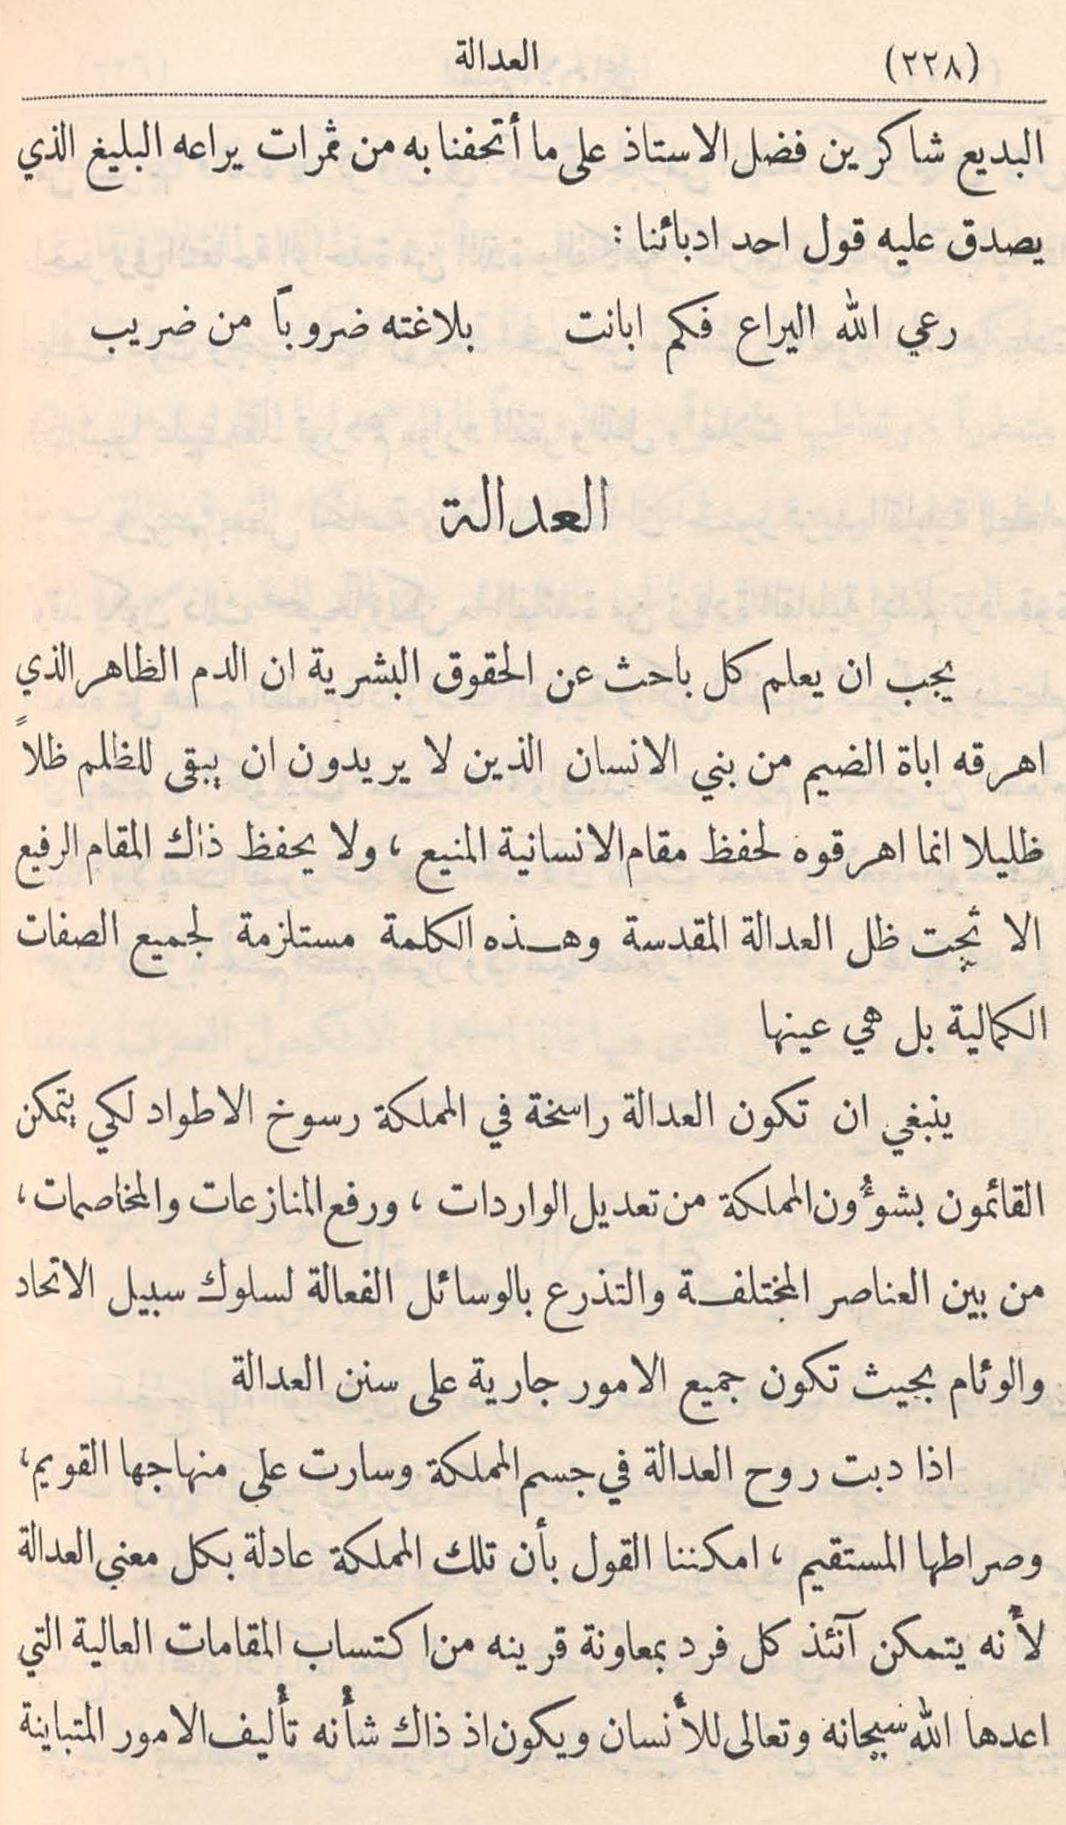 (٢٢٨) العدالة
البديع شاكرين فضل الاستاذ على ما أتحفنا به من ثمرات يراعه البليغ الذي
يصدق عليه قول احد ادبائنا :
رعي الله اليراع فكم ابانت بلاغته ضروباً من ضريب
العدالة
يجب ان يعلم كل باحث عن الحقوق البشرية ان الدم الظاهر الذي
اهرقه اباة الضيم من بني الانسان الذين لا يريدون ان يبقى للظلم ظلاً
ظليلا انما اهرقوه لحفظ مقام الانسانية المنيع ، ولا يحفظ ذاك المقام الرفيع
الا تحت ظل العدالة المقدسة وهـذه الكلمة مستلزمة لجميع الصفات
الكمالية بل هي عينها
ينبغي ان تكون العدالة راسخة في المملكة رسوخ الاطواد لكي يتمكن
القائمون بشوءُون المملكة من تعديل الواردات ، ورفع المنازعات والمخاصمات ،
من بين العناصر المختلفـة والتذرع بالوسائل الفعالة لسلوك سبيل الاتحاد
والوئام بحيث تكون جميع الامور جارية على سنن العدالة
اذا دبت روح العدالة في جسم المملكة وسارت على منهاجها القويم ،
وصراطها المستقيم ، امكننا القول بأن تلك المملكة عادلة بكل معنى العدالة
لأنه يتمكن آنئذ كل فرد بمعاونة قرينه من اكتساب المقامات العالية التي
اعدها الله سبحانه وتعالى للأنسان ويكون اذ ذاك شأنه تأليف الامور المتباينة